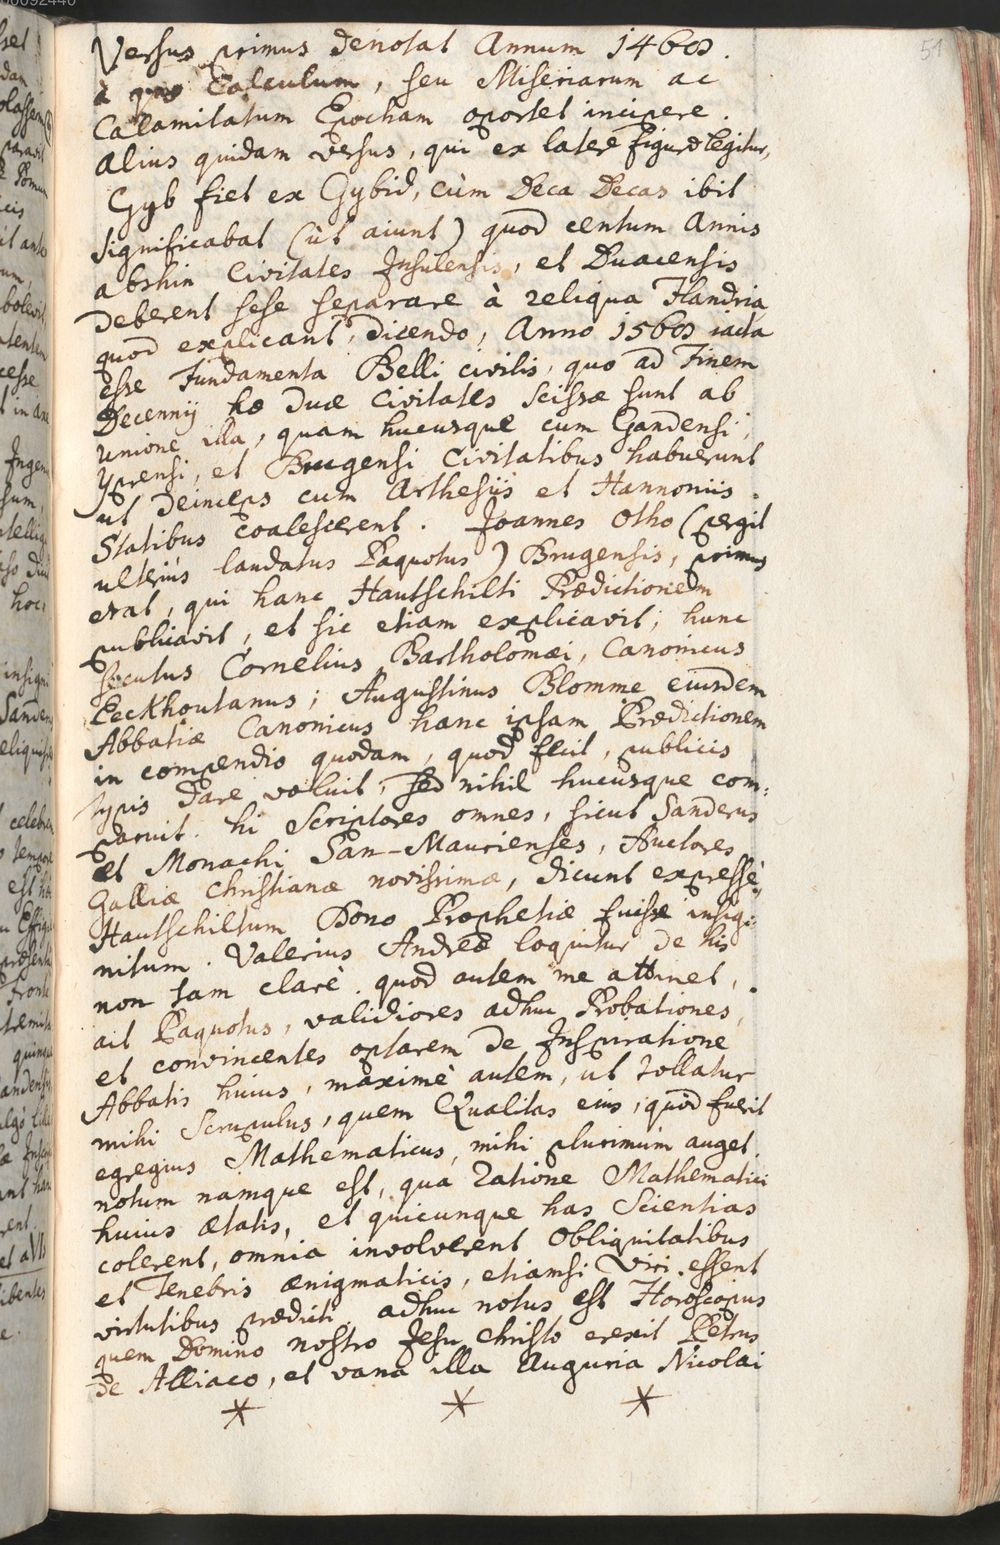 51
Versus primus denotat Annum 1460.
à quo Calculum, seu Miseriarum ac
Calamitatum Epocham oportet incipere.
Alius quidam versus, qui ex latere figuræ legitur,
Gyb fiet ex Gybid, cùm Deca Decas ibit
significabat (ùt aiunt) quod centum Annis
abshin Civitates Insulensis, et Duacensis
deberent sese separare à reliqua Flandria,
quod explicant, dicendo, Anno 1560 iacta
esse Fundamenta Belli civilis, quo ad Finem
Decennij hæ duæ Civitates scissæ sunt ab
unione illa, quam hucusque cum Gandensi,
Yprensi, et Brugensi Civitatibus habuerunt
ut deinceps cum Arthesiis et Hannoniis
Statibus coalescerent. Joannes Otho (pergit
ulteriùs laudatus Paquotus) Brugensis, primus
erat, qui hanc Hautschilti Prædictionem
publicavit, et sic etiam explicavit; hunc
secutus Cornelius Bartholomæi, Canonicus
Eeckhoutanus; Augustinus Blomme eiusdem
Abbatiæ Canonicus hanc ipsam Prædictionem
in compendio quodam, quod fecit, publicis
typis dare voluit, sed nihil hucusque com:
paruit. hi Scriptores omnes, sicut Sanderus
et Monachi San-Maurienses, Auctores
Galliæ Christianæ novissimæ, dicunt expressè,
Hautschiltum Dono Prophetiæ fuisse insig:
nitum. Valerius Andreæ loquitur de his
non tam clarè. quod autem me attinet,
ait Paquotus, validiores adhuc Probationes,
et convincentes optarem de Inspiratione
Abbatis huius, maximè autem, ut tollatur
mihi Scrupulus, quem Qualitas eius, quòd fuerit
egregius Mathematicus, mihi plurimùm auget.
notum namque est, qua ratione Mathematici
huius ætatis, et quicunque has Scientias
colerent, omnia involverent Obliquitatibus
et Tenebris ænigmaticis, etiamsi Viri essent
virtutibus præditi, adhuc notus est Horoscopus
quem Domino nostro Jesu Christo erexit Petrus
de Alliaco, et vana illa Auguria Nicolai
* * *